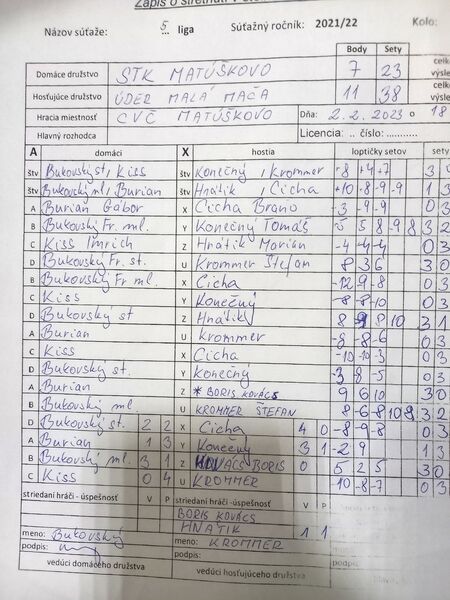 Zápis o stretnutí
Názov súťaže: 5 liga Súťažný ročník: 2021/22 Kolo:
Body Sety celk
Domáce družstvo STK MATÚŠKOVO 7 23 výsle
Hosťujúce družstvo ÚDER MALÁ MAČA 11 38 celk výsle
Hracia miestnosť CVČ MATÚŠKOVO Dňa: 2.2.2023 o 18
Hlavný rozhodca Licencia .. číslo: ..........
A domáci X hostia loptičky setov sety
štv Bukovský st, Kiss štv Konečný, Krommer -8 +4 +7 3
štv Bukovský ml, Burian štv Hnátik, Cicha +10 -8 -9 -9 1 3
A Burian Gábor X Cicha Brano -3 -9 -9 0 3
B Bukovský Fr. ml. Y Konečný Tomáš 5 8 9 8 3 2
C Kiss Imrich Z Hnátik Marian -4 -4 -4 0 3
D Bukovský Fr. st. U Krommer Štefan 8 3 6 3 0
B Bukovský Fr ml. X Cicha -12 -9 -8 0 3
C Kiss Y Konečný -8 -8 -10 0 3
D Bukovský st Z Hnátik 8 9 8 10 3 1
A Burian U Krommer -8 -8 -6 0 3
C Kiss X Cicha -10 -10 -3 0 3
D Bukovský st. Y Konečný -3 -8 -5 0 3
A Burian Z * BORIS KOVÁCS 9 6 10 3 0
B Bukovský ml. U KROMMER ŠTEFAN 8 -6 -8 10 9 3 2
D Bukovský st. 2 2 X Cicha 4 0 -8 -9 -8 0 3
A Burian 1 3 Y Konečný 3 1 -2 9 1 3
B Bukovský ml. 3 1 Z KOVÁCS BORIS 0 5 2 5 3 0
C Kiss 0 4 U KROMMER 10 -8 -7 0 3
striedaní hráči -úspešnosť V P striedaní hráči -úspešnosť V P
BORIS KOVÁCS
HNÁTIK 1 1
meno: Bukovský meno: KROMMER
podpis: podpis:
vedúci domáceho družstva vedúci hosťujúceho družstva